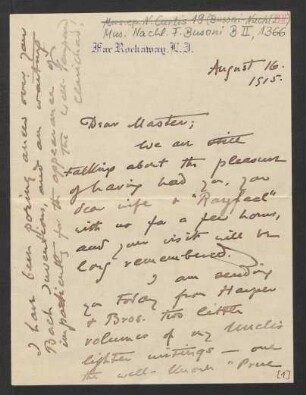 Mus. ep. N. Curtis 19 (Busoni-Nachl.)
Mus. Nachl. F. Busoni B II, 1366
Far Rockaway, L.I.
August 16.
1915.
Dear Master;
We are still
talking about the pleasure
of having had you, your
dear wife & "Raphael"
with us for a few hours,
and your visit will be
long remembered.
I am sending
you today from Harper
& Bros. two little
volumes of my Uncle's
lighter writings — one
the well-known "Prue
[1]
I have been poring anew over your
Bach Inventions, and am waiting
impatiently for the appearance of
the Well-Tempered
Clavichord!